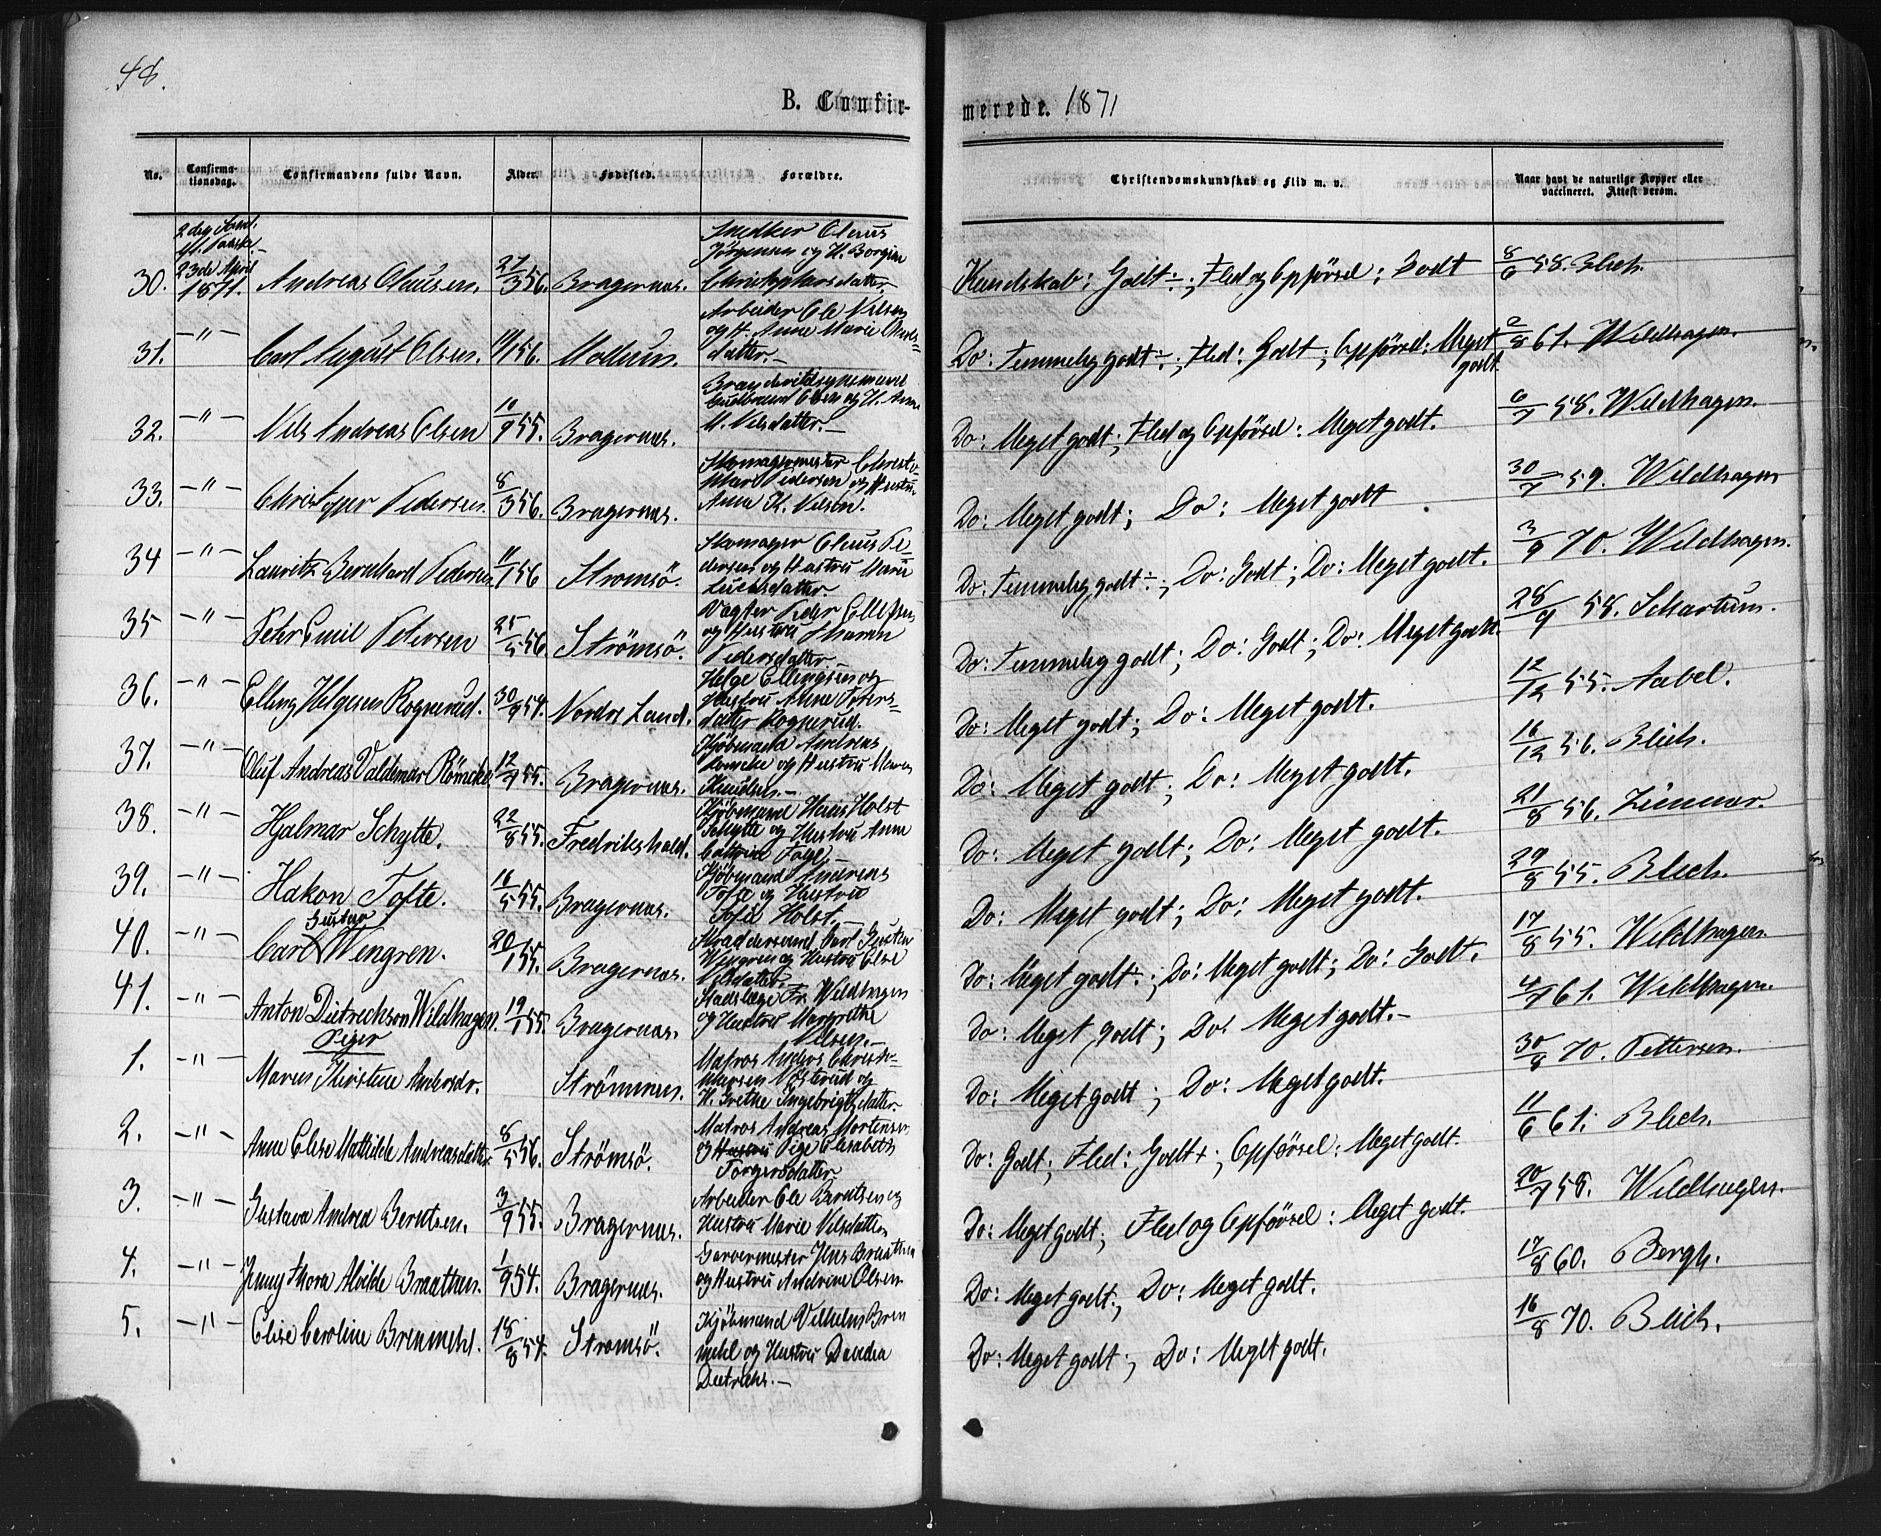 48.
B. Confir-
merede. 1871
No.
Confirma-
tionsdag.
Confirmandens fulde Navn.
Alder.
Fødested.
Forældre.
Christendomskundskab og Flid m. v.
Naar havt de naturlige Kopper eller
vaccineret. Attest derom.
30. 2 deg Sønd. 23de April 1871. Andreas Olausen. 27/3 56. Bragernæs.
Snedker Olaus
Jørgensen og H. Borgine
Christophersdatter.
Kundskab: Godt÷; Flid og Opførsel: Godt 8/6 58. Blich.
31. —"— Carl August Olsen. Modum.
Arbeider Ole Nilsen
og H. Anne Marie Anders-
datter.—
Do: Temmelig godt÷; Flid: Godt; Opførsel: Meget godt. 2/8 61. Wildhagen.
32. —"— Nils Andreas Olsen 10/9 55. Bragernæs.
Gulbrand Olsen og H. Anne
M. Nilsdatter.—
Do: Meget godt; Flid og Opførsel: Meget godt. 6/7 58. Wildhagen.
33. —"— Christoffer Pedersen. 8/3 56. Bragernæs.
Skomagermester Christo-
Pedersen og Hustru
Anne K. Nilsen.
Do: Meget godt; Do: Meget godt 30/7 59. Wildhagen
34 —"— Lauritz Bernhard Pedersen 11/1 56 Strømsö.
Skomager Olaus Pe-
dersen og Hustru Marie
Lucasdatter.
Do: Temmelig godt÷; Do: Godt; Do: Meget godt. 3/9 70. Wildhagen.
35 —"— Peter Emil Petersen 25/5 56 Strömsö.
Vægter Peder Ellefsen
og Hustru Maren
Pedersdatter.—
Do: Temmelig godt; Do: Godt; Do: Meget godt. 28/9 58. Schartum.
36. —"— Elling Helgesen Rognerud. 30/9 54. Nordre Land.
Helge Ellingsen og
Hustru Anne Ivers-
datter Rognerud.
Do: Meget godt; Do: Meget godt. 12/12 55. Aabel.
37. —"— Oluf Andreas Valdemar Römcke 12/9 55. Bragernæs.
Kjöbmand Andreas
Römcke og Hustru Maren
Knudsen.—
Do: Meget godt; Do: Meget godt. 16/12 56. Blich.
38. —"— Hjalmar Schytte. 22/8 55. Fredrikshald.
Kjöbmand Hans Holst
Schytte og Hustru Anne
Cathrine —
Do: Meget godt; Do: Meget godt. 21/8 56. Zimmer.
39. —"— Hakon Tofte. 16/5 55. Bragernæs.
Kjöbmand Andreas
Tofte og Hustru
Sofie Holst.—
Do: Meget godt; Do: Meget godt. 29/8 55. Blich.
40. —"— Carl Gustav Wengren. 20/1 55. Bragernæs.
Skræddersvend Carl Gustav
Wengren og Hustru Elise
Nilsdatter.
Do: Meget godt÷; Do: Meget godt; Do: Godt. 17/8 55. Wildhagen.
41. —"— Anton Dietrichson Wildhagen. 19/1 55. Bragernæs.
Stadslæge Fr. Wildhagen
og Hustru Margrethe
Nilsen.—
Do: Meget godt; Do: Meget godt.— 4/7 61. Wildhagen.
Piger
1. —"— Maren Kirstine Andersdr. Strömmen.
Matros Anders Christo-
H. Grethe Ingebrigtsdatter
Do: Meget godt; Do: Meget godt. 30/8 70. Pettersen.
2. —"— Anne Elise Mathilde Andreasdatter 8/5 56. Strömsö.
Matros Andreas Mortensen
og Hustru Pige Elisabeth
Torgersdatter
Do: Godt; Flid: Godt+; Opførsel: Meget godt. 11/6 61. Blich.
3. —"— Gustava Andrea Berntsen. 3/9 55. Bragernæs.
Arbeider Ole Berntsen og
Hustru Marie Nilsdatter
Do: Meget godt; Flid og Opførsel: Meget godt. 20/7 58. Wildhagen.
4. —"— Jenny Thora Alvilde Braathen. 1/9 54. Bragernæs.
Garvermester Jens Braathen
og Hustru Andrine Olsen
Do: Meget godt; Do: Meget godt. 17/8 60. Bergh.
5. —"— Elise Caroline Bremmehl. 18/8 54. Strömsö.
Kjöbmand Vilhelm Brem
mehl og Hustru Dandea
Dietrichs.—
Do: Meget godt; Do: Meget godt. 16/8 70. Blich.